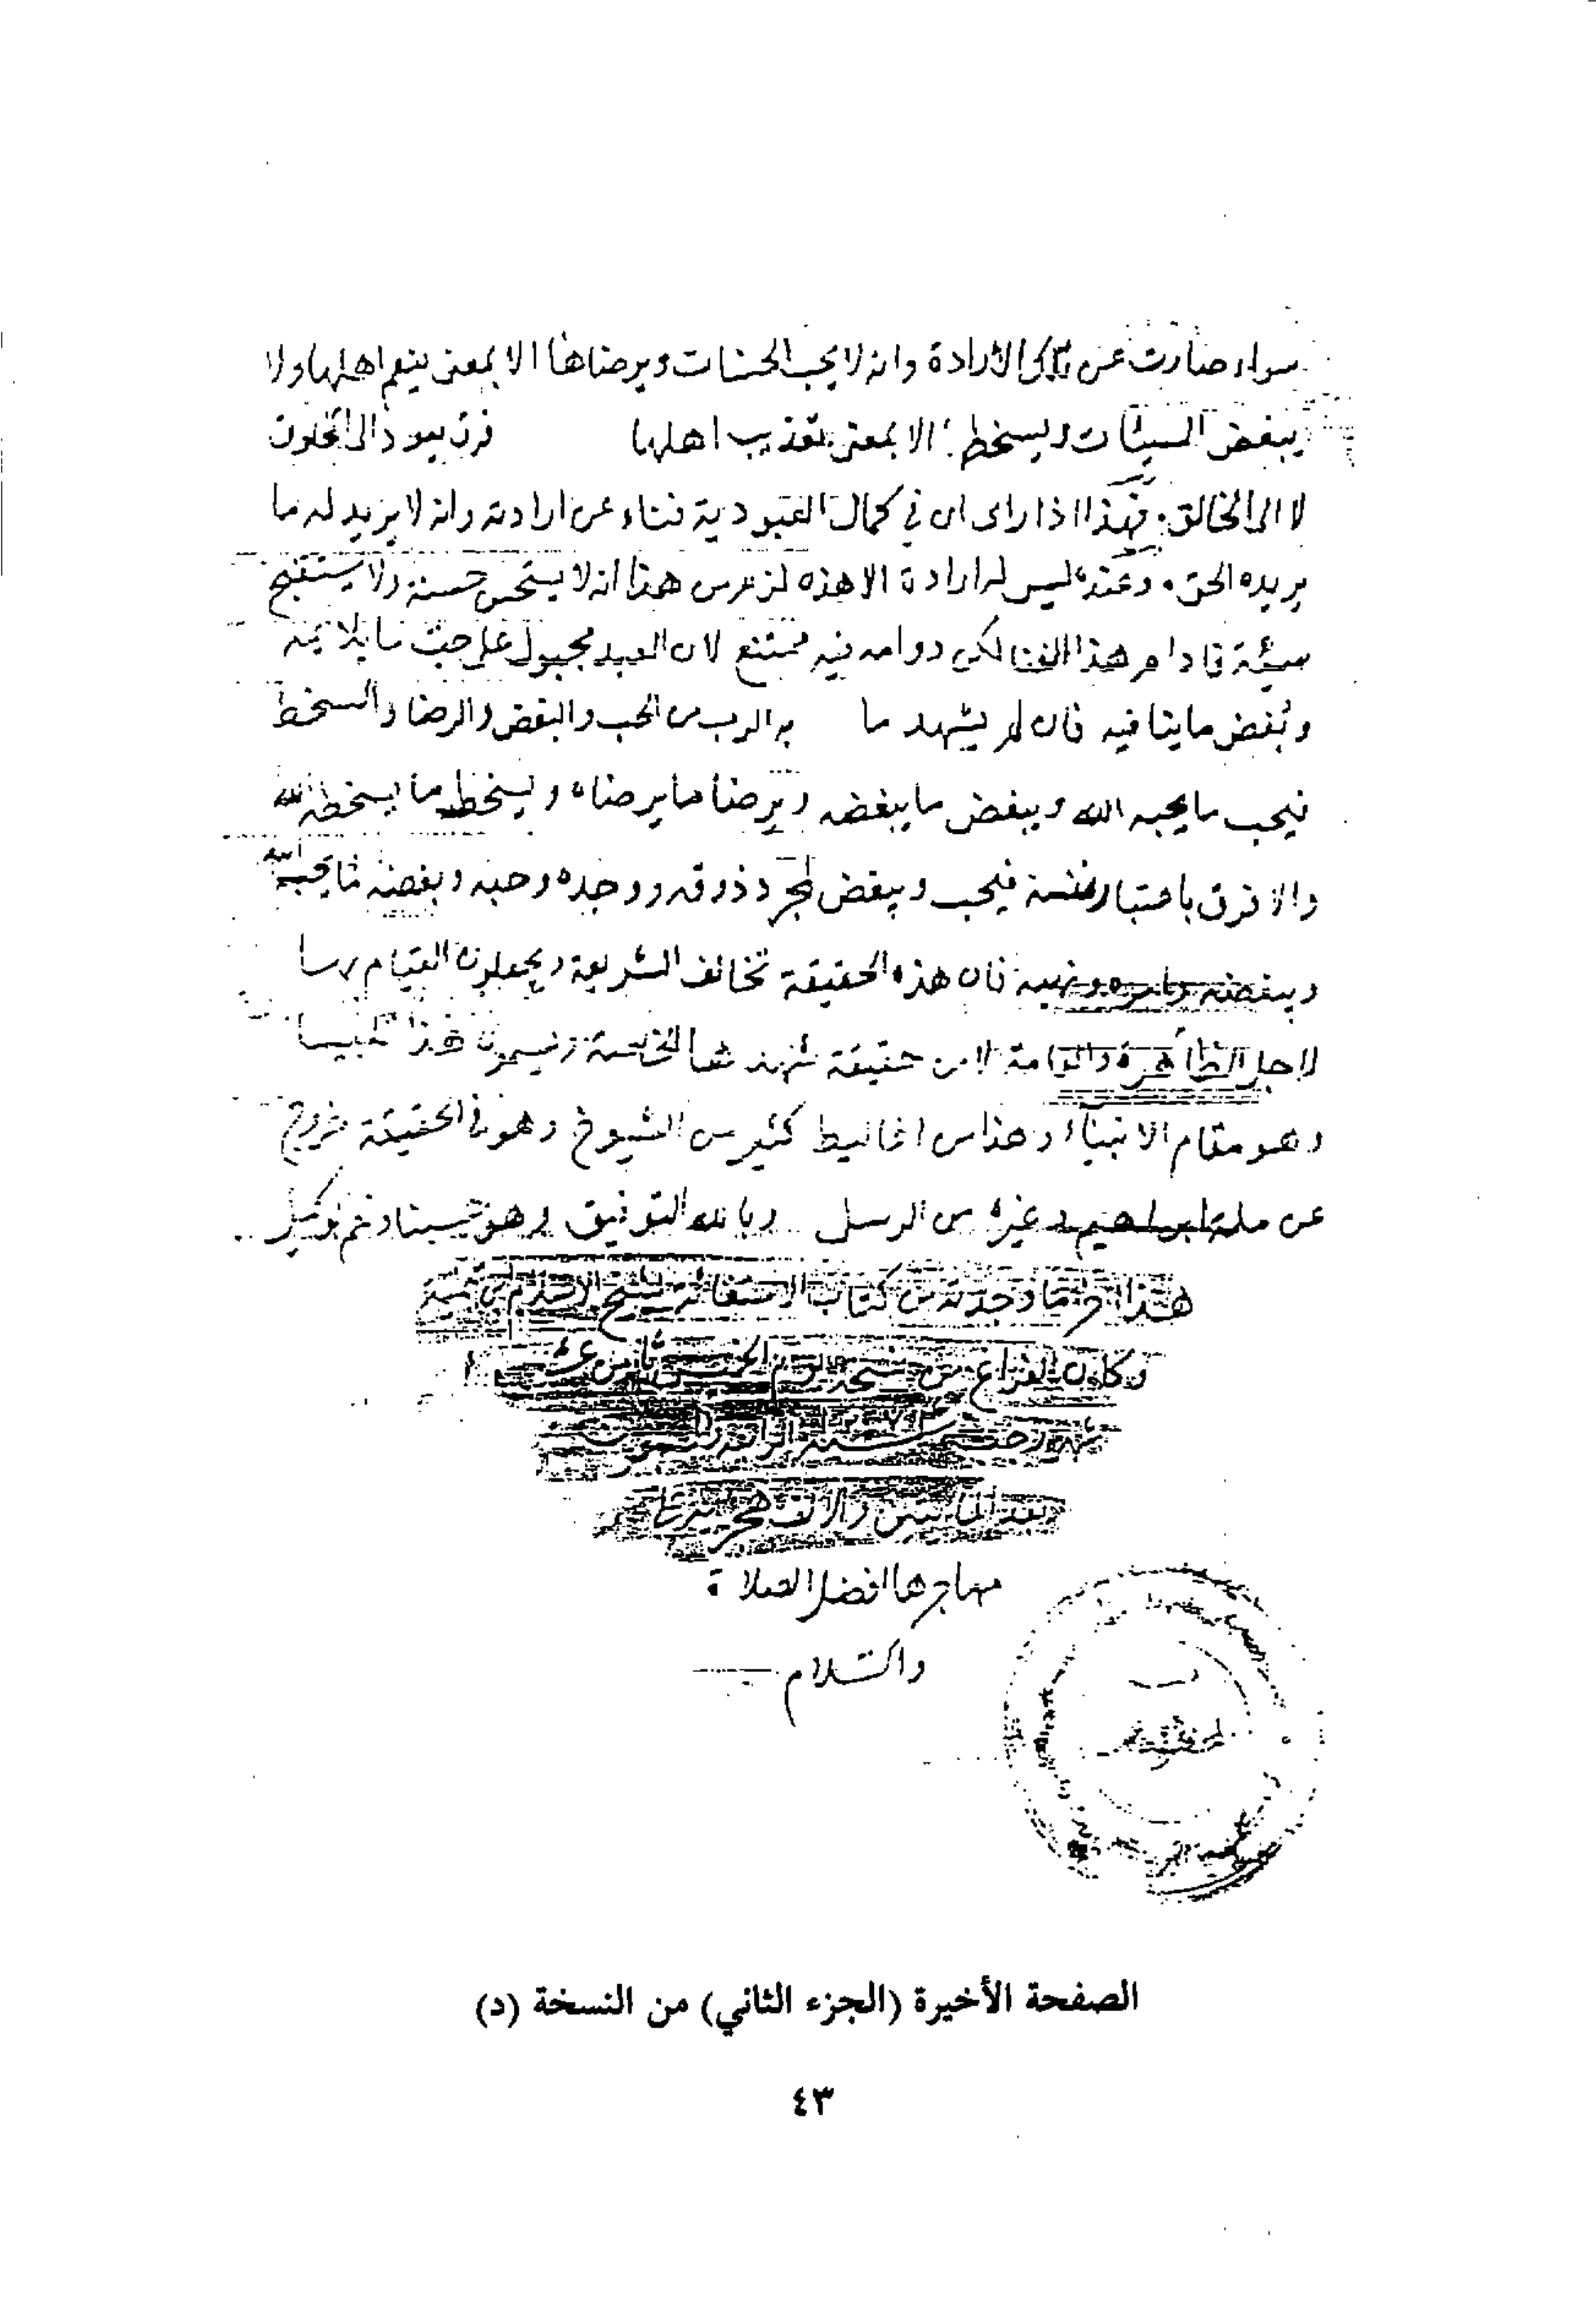 سواء صارت عن تلك الارادة وانه لا يحب الحسنات ويرضاها الا بمعنى ينعم اهلها ولا
يبغض السيئات ويسخطها الا بمعنى يعذب اهلها فرق يعود الى المخلوق
لا الى الخالق فهذا اذا راى ان في كمال العبودية فناء عن ارادته وانه لا يريد له ما
يريده الحق وعنده ليس له ارادة الا هذه لزم من هذا انه لا يستحسن حسنة ولا يستقبح
سيئة ما دام هذا الفنا لكن دوامه فيه ممتنع لان العبد مجبول على حب ما يلائمه
وبغض ما ينافيه فان لم يشهد ما به الرب من الحب والبغض والرضا والسخط
فيحب ما يحبه الله ويبغض ما يبغضه ويرضا ما يرضاه ويسخط ما يسخطه الله
والا فرق باعتبار نفسه فيحب ويبغض لمجرد ذوقه ووجده وحبه وبغضه ما يحبه الله
ويبغضه وامره ونهيه فان هذه الحقيقة تخالف الشريعة ويجعلون القيام بها
لاجل الظاهرة والعامة لا من حقيقة شهدها الخاصة ويسمون هذا تلبيسا
وهو مقام الانبياء وهذا من اغاليط كثير من الشيوخ وهو في الحقيقة خروج
عن ملة ابراهيم وغيره من الرسل وبالله التوفيق وهو حسبنا ونعم الوكيل
هذا اخر ما وجدته من كتاب الاستغاثة لشيخ الاسلام ابن تيمية
وكان الفراغ من نسخه يوم الخميس ثامن عشر
شهر سنة
بعد المائتين والالف هجرية على
مهاجرها افضل الصلاة
والسلام
الصفحة الأخيرة (الجزء الثاني) من النسخة (د)
٤٣